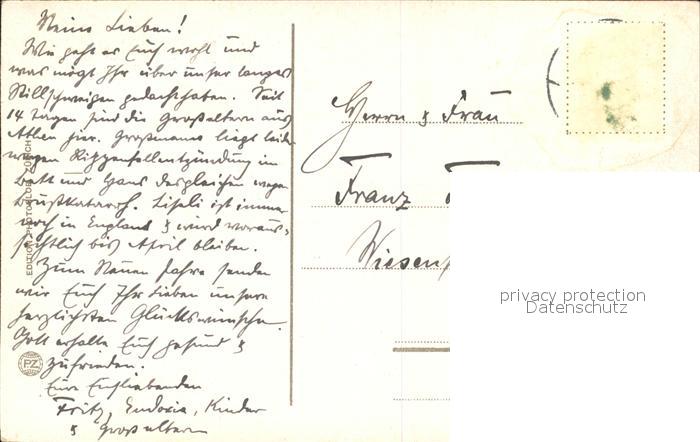 Meine Lieben!
Wie geht es Euch wohl und
was mögt Ihr über unser langes
Stillschweigen gedacht haben. Seit
14 Tagen sind die Großeltern aus
Athen hier. Großmama liegt leider
wegen Rippenfellentzündung im
Bett und Hans desgleichen wegen
Brustkatarrh. Liseli ist immer
noch in England & wird voraus-
sichtlich bis April bleiben.
Zum Neuen Jahre senden
wir Euch Ihr Lieben unsere
herzlichsten Glückwünsche.
Gott erhalte Euch gesund &
zufrieden.
Eure Euchliebenden
Fritz, Eudoxia, Kinder
& Großeltern
PZ
Herrn & Frau
Franz
Wiesen
privacy protection
Datenschutz